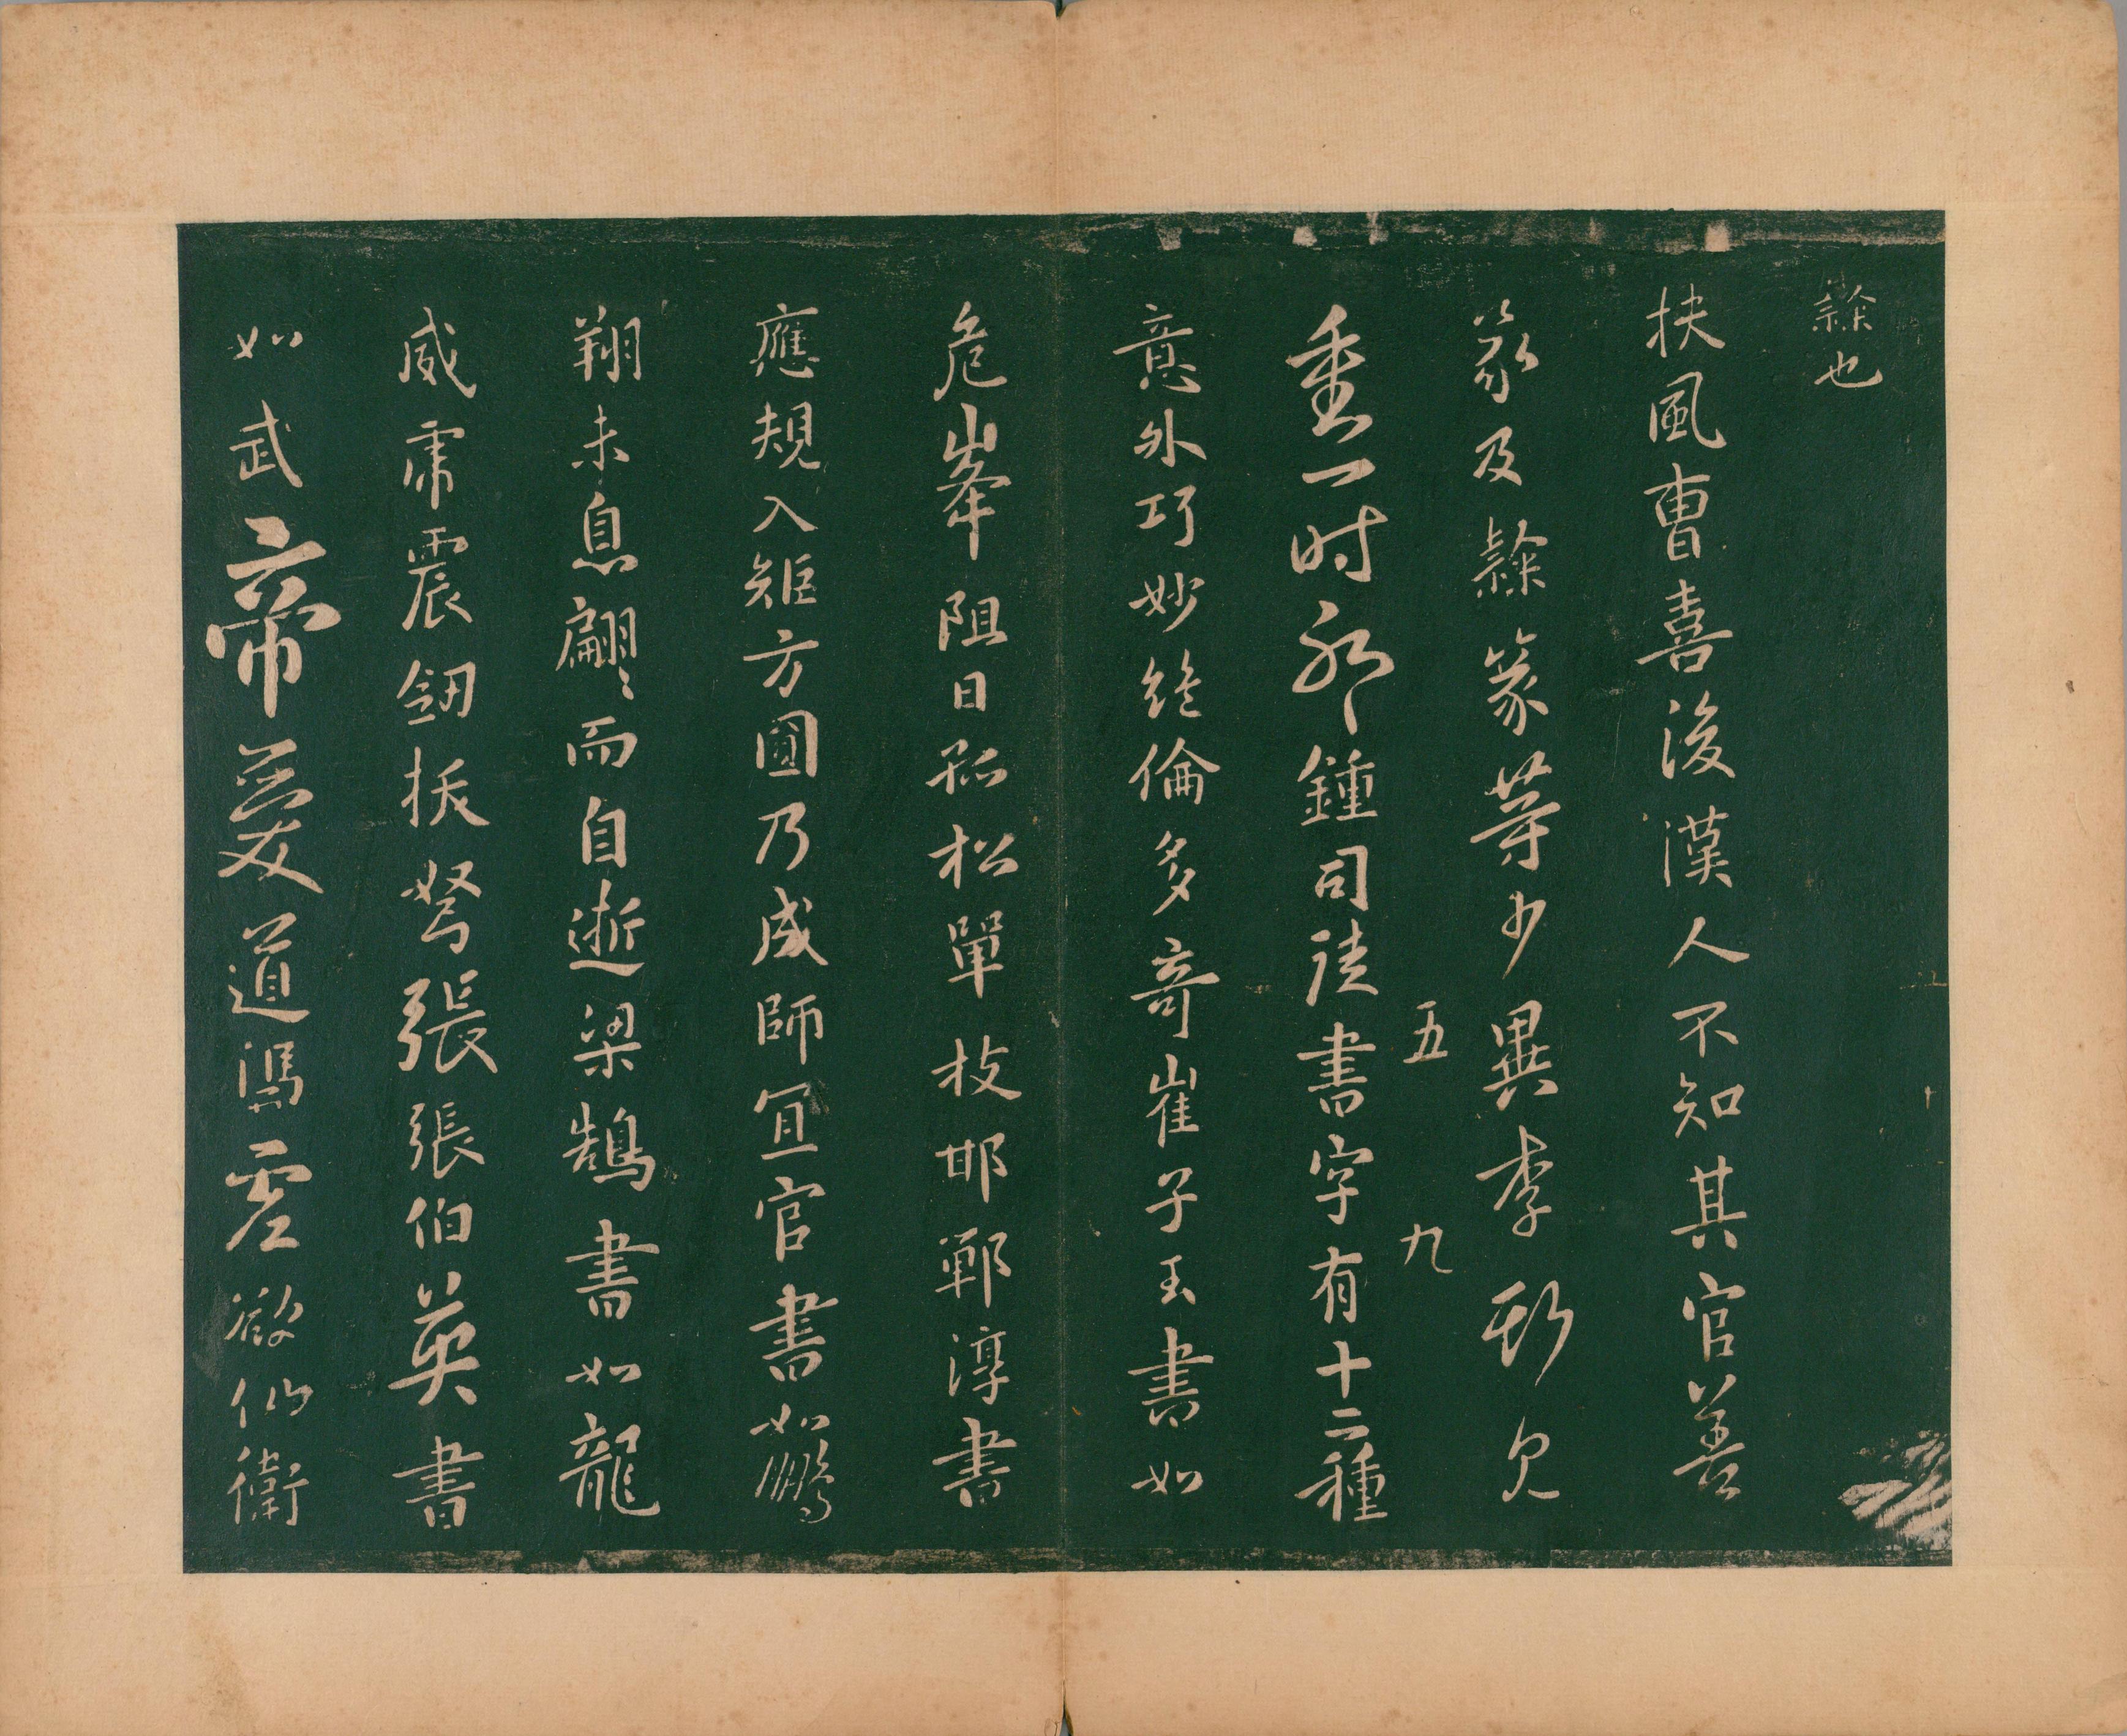 隸也
扶風曹喜後漢人不知其官善
篆及隸篆等少異李斯見
重一時耶鍾司徒書字有十二種
五九
意外巧妙絶倫多奇崔子玉書如
危峯阻日孤松單枝邯鄲淳書
應規入矩方圓乃成師冝官書如鵬
翔未息翩〻而自逝梁鵠書如龍
威虎震釰拔弩張張伯英書
如武帝愛道馮虛欲仙衛